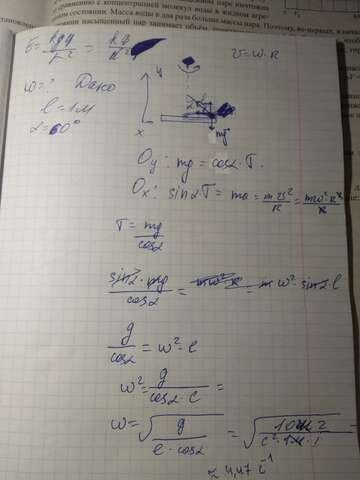 сравнению с концентрацией молекул воды в жидком агре-
состоянии. Масса воды в два раза больше массы пара. Поэтому, во-первых, в начал
насыщенный пар занимает объём,
υ = ω·R
ω=? Дано
l=1м
α=60°
y
x
mg
Oy: mg = cosα·T.
Ox: sinαT = ma = mυ²/R = mω²·R²/R
T = mg/cosα
sinα·mg/cosα = mω²·sinα·l
g/cosα = ω²·l
ω² = g/cosα·l =
ω = √(g/l·cosα) = √(10м·2/с²·1м·1) =
≈ 4,47 с⁻¹